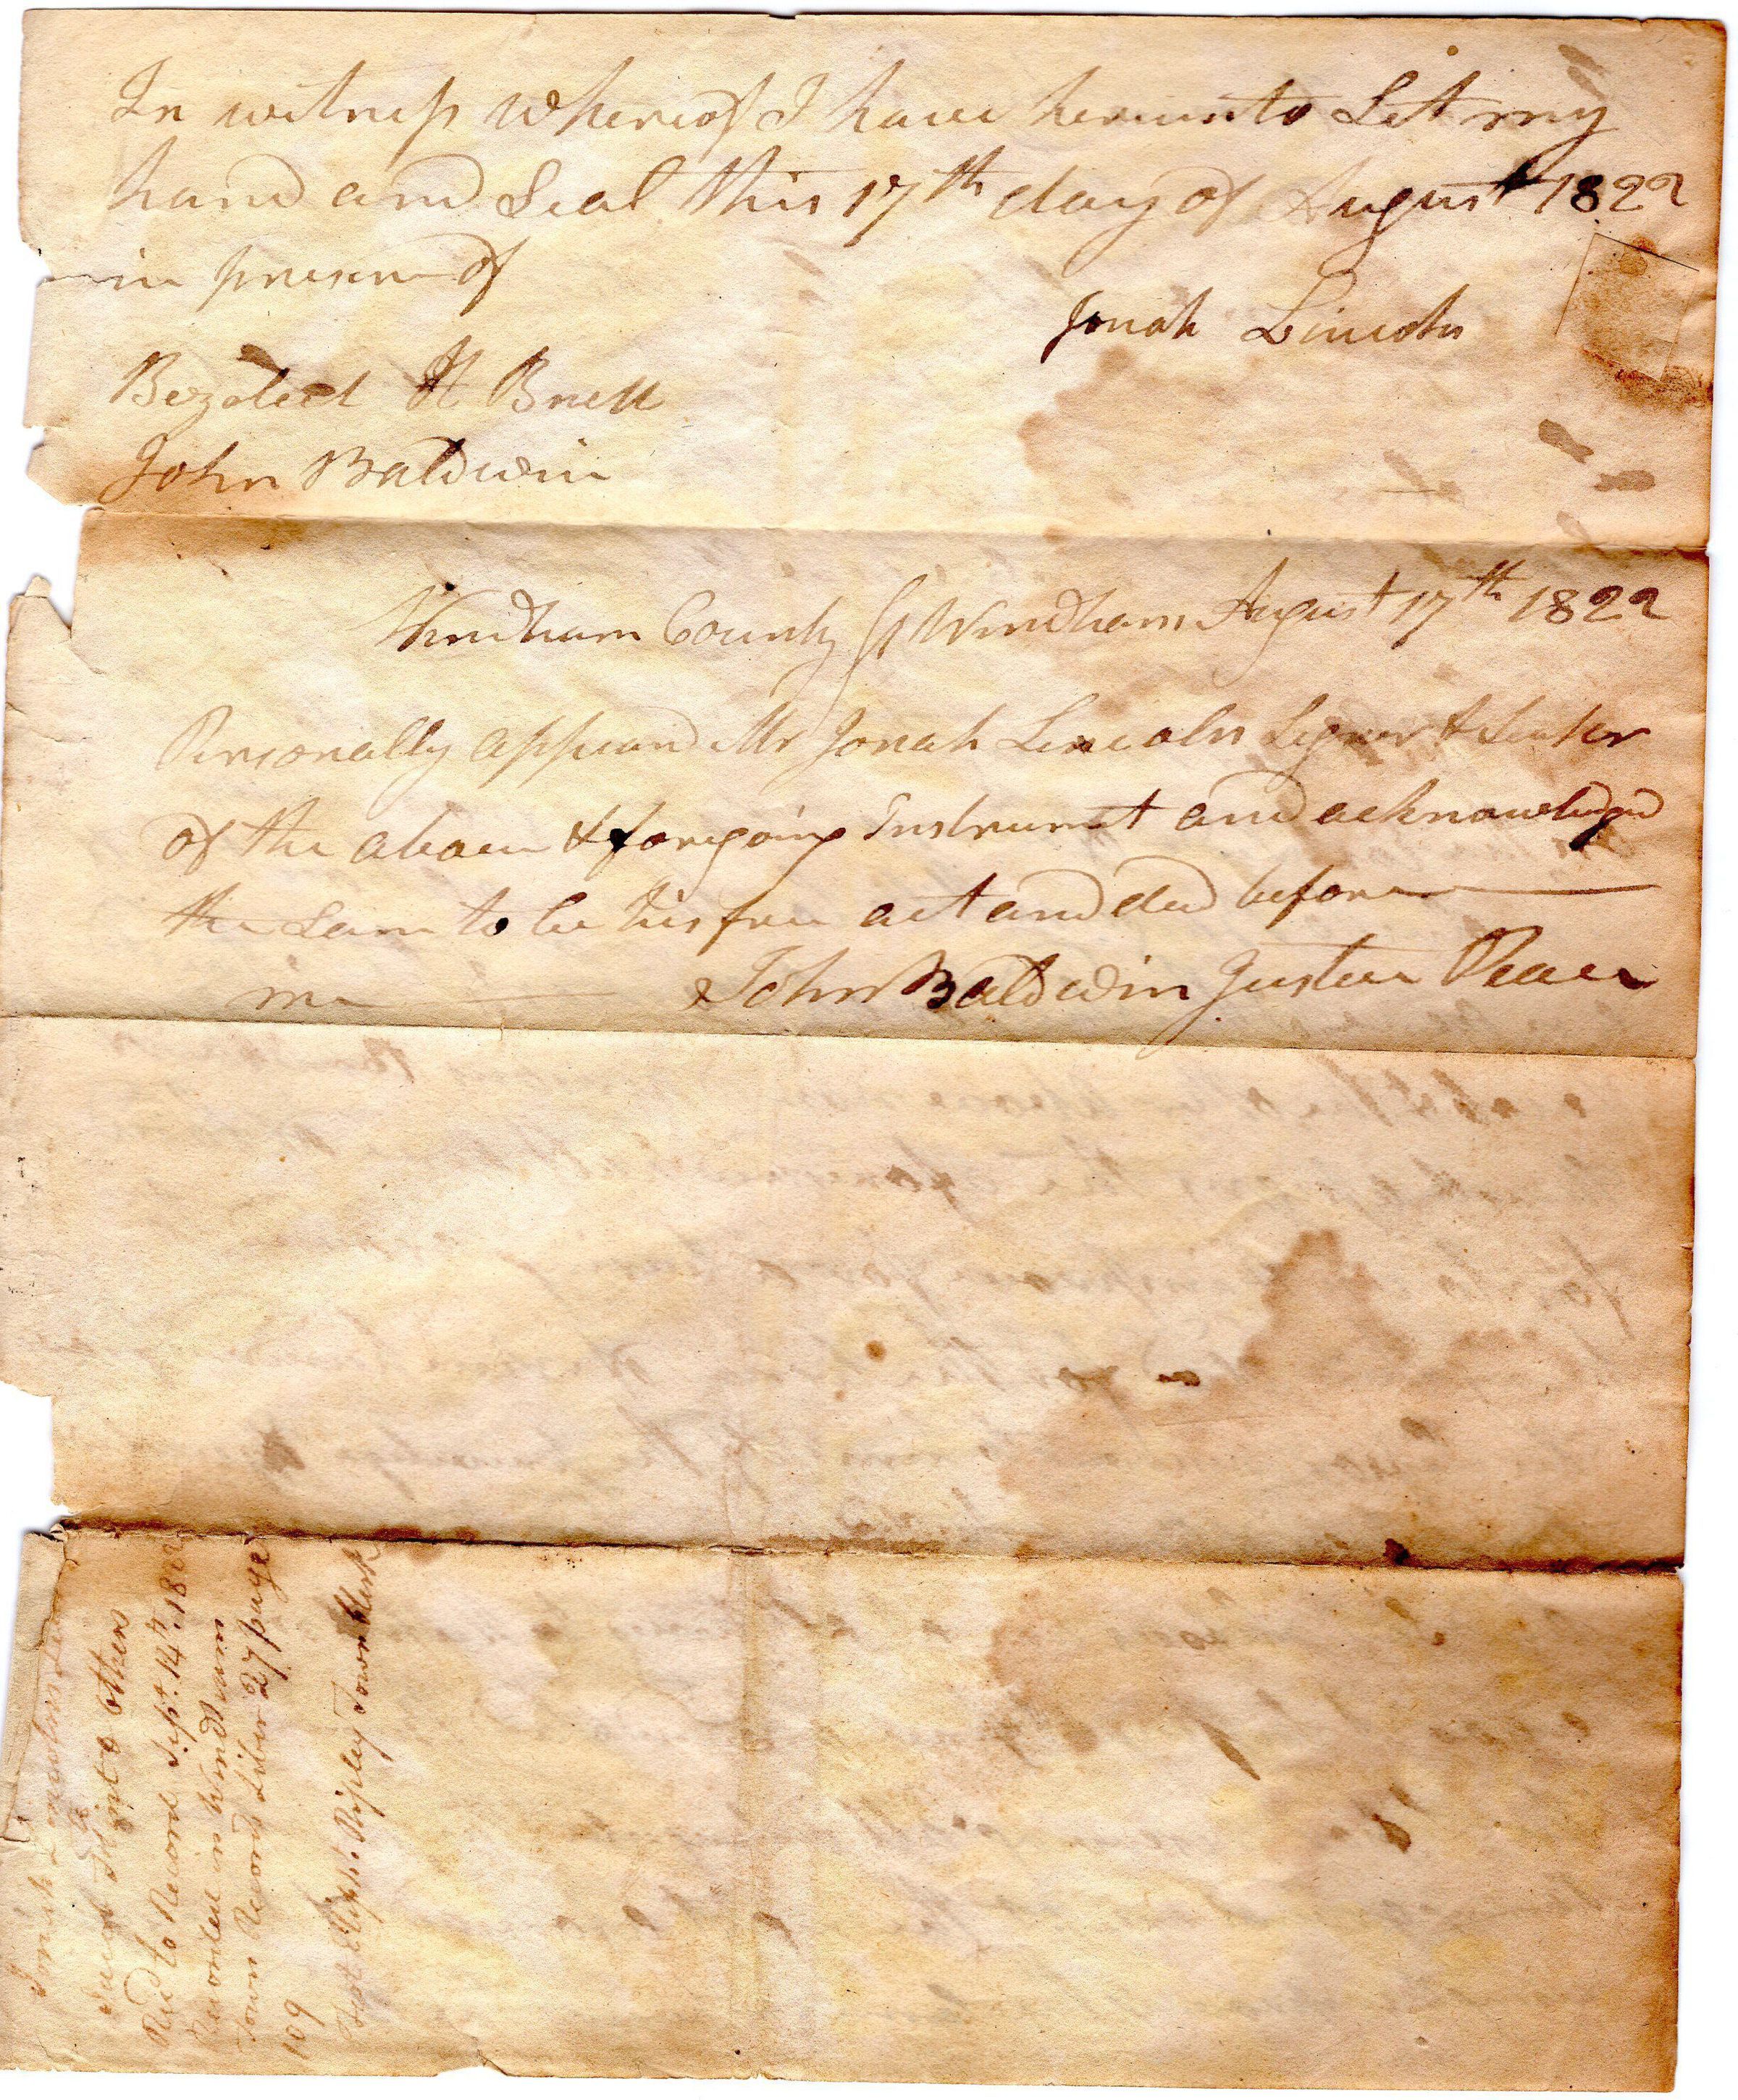 In witness whereof I have hereunto Set my
hand and Seal this 17th day of August 1822
in presence of
Jonah Lincoln
Bezaleel H Brett
John Baldwin
Windham County Ss Windham August 17th 1822
Personally appeard Mr Jonah Lincoln Signer & Sealer
of the above & foregoing Instrument and acknowledged
the Same to be his free act and deed before
me John Baldwin Justice Peace
Jonah Lincolns
& others
Recd to Record Sept. 14th 1822
Recorded in Windham
Town Records Liber 27 page
109
Test Elipht. Ripley Town Clerk